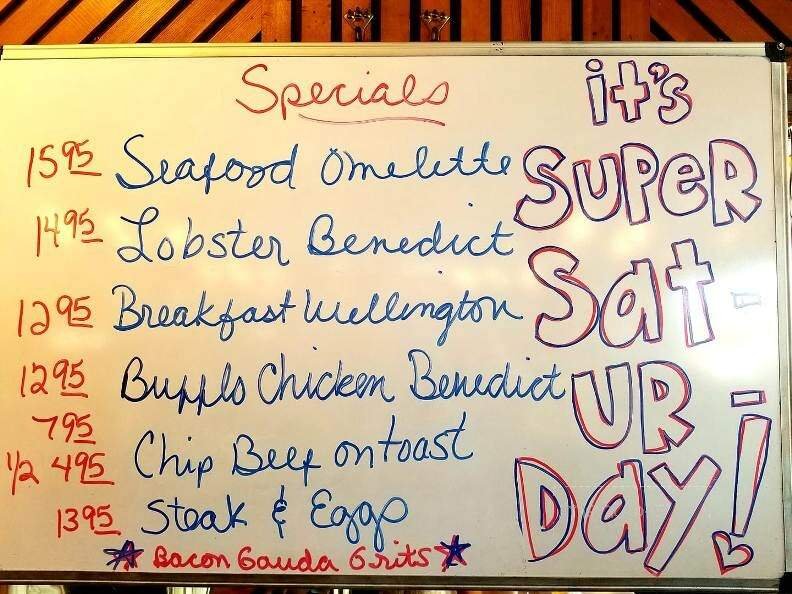 Specials
15 95 Seafood Omelette
14 95 Lobster Benedict
12 95 Breakfast Wellington
12 95 Bufflo Chicken Benedict
7 95
1/2 4 95 Chip Beef on toast
13 95 Steak & Eggs
Bacon Gauda Grits
it's
SUPER
Sat-
UR-
Day!